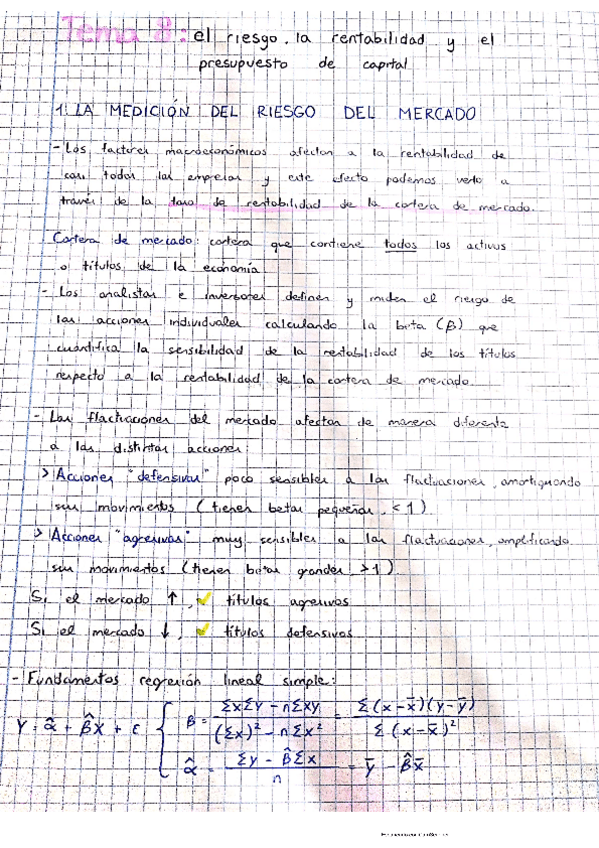 Tema 8: el riesgo, la rentabilidad y el
presupuesto de capital
1. LA MEDICIÓN DEL RIESGO DEL MERCADO
- Los factores macroeconómicos afectan a la rentabilidad de
casi todas las empresas y este efecto podemos verlo a
través de la tasa de rentabilidad de la cartera de mercado.
Cartera de mercado: cartera que contiene todos los activos
o títulos de la economía
- Los analistas e inversores definen y miden el riesgo de
las acciones individuales calculando la beta (β) que
cuantifica la sensibilidad de la rentabilidad de los títulos
respecto a la rentabilidad de la cartera de mercado
- Las fluctuaciones del mercado afectan de manera diferente
a las distintas acciones
> Acciones "defensivas" poco sensibles a las fluctuaciones, amortiguando
sus movimientos (tienen betas pequeñas, < 1)
> Acciones "agresivas" muy sensibles a las fluctuaciones, amplificando
sus movimientos (tienen betas grandes, > 1)
Si el mercado ↑, ✓ títulos agresivos
Si el mercado ↓, ✓ títulos defensivos
- Fundamentos regresión lineal simple:
Y = α̂ + β̂X + ε { β = (ΣxΣy - nΣxy) / ((Σx)² - nΣx²) = Σ(x-x̄)(y-ȳ) / Σ(x-x̄)²
α̂ = (Σy - β̂Σx) / n = ȳ - β̂x̄